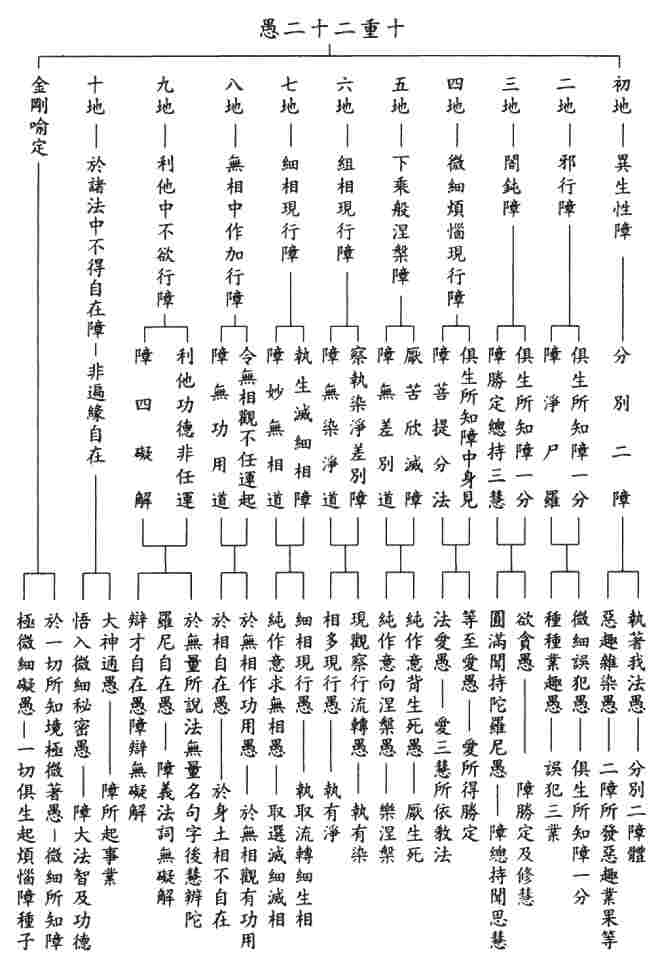 十重二十二愚
初地
異生性障
分別二障
執著我法愚
分別二障體
惡趣雜染愚
二障所發惡趣業果等
二地
邪行障
俱生所知障一分
障淨尸羅
微細誤犯愚
俱生所知障一分
種種業趣愚
誤犯三業
三地
闇鈍障
俱生所知障一分
障勝定總持三慧
欲貪愚
障勝定及修慧
圓滿聞持陀羅尼愚
障總持聞思慧
四地
微細煩惱現行障
俱生所知障中身見
障菩提分法
等至愛愚
愛所得勝定
法愛愚
愛三慧所依教法
五地
下乘般涅槃障
厭苦欣滅障
障無差別道
純作意背生死愚
厭生死
純作意向涅槃愚
樂涅槃
六地
組相現行障
察執染淨差別障
障無染淨道
現觀察行流轉愚
執有染
相多現行愚
執有淨
七地
細相現行障
執生滅細相障
障妙無相道
細相現行愚
執取流轉細生相
純作意求無相愚
取選滅細滅相
八地
無相中作加行障
令無相觀不任運起
障無功用道
於無相作功用愚
於無相觀有功用
於相自在愚
於身土相不自在
九地
利他中不欲行障
利他功德非任運
障四礙解
於無量所說法無量名句字後慧辯陀
羅尼自在愚
障義法詞無礙解
辯才自在愚障辯無礙解
十地
於諸法中不得自在障
非遍緣自在
大神通愚
障所起事業
悟入微細秘密愚
障大法智及功德
金剛喻定
於一切所知境極微著愚
微細所知障
極微細礙愚
一切俱生起煩惱障種子